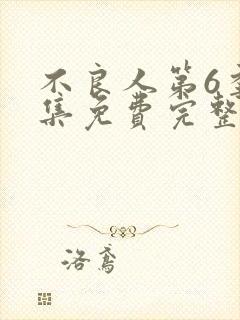 不良人第6季
集免费完整
洛鸢